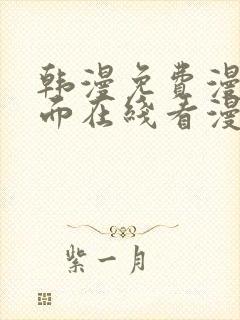 韩漫免费漫
而在线看漫
紫一月